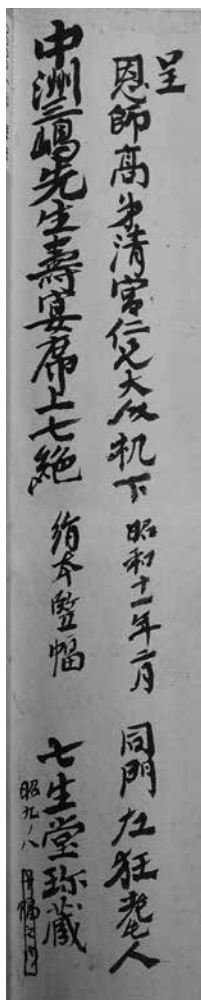 呈
恩師高弟清宮仁兄大人机下 昭和十一年二月 同門 左狂耄人
中洲三嶋先生壽宴席上七絶 絹本竪幅 七生堂珎蔵
昭九ノ八